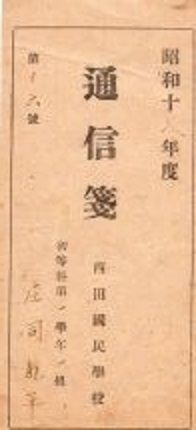 昭和十八年度
通信箋
第十六號
西田國民學校
初等科第一學年一組
庄司